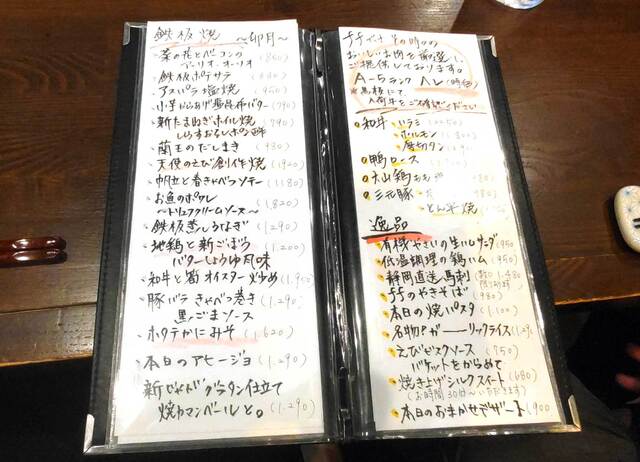 鉄板焼 〜卯月〜
・菜の花とベーコンの
アーリオ・オーリオ (860)
・鉄板ポテサラ (680)
・アスパラ塩焼 (950)
・小芋からあげ 昆布バター (790)
・新たまねぎホイル焼 (790)
しらすおろしポン酢
・蘭王のだしまき (980)
・天使のえび創作焼 (1.920)
・帆立と春きゃべつソテー (1.180)
・お魚のポワレ (1.820)
〜トリュフクリームソース〜
・鉄板蒸しうなぎ (1.290)
・地鶏と新ごぼう (1.200)
バターしょうゆ風味
・和牛と筍 オイスター炒め (1.950)
・豚バラ きゃべつ巻き (1.290)
黒ごまソース
・ホタテかにみそ (1.620)
・本日のアヒージョ (1.290)
新じゃが グラタン仕立て
焼カマンベールと。 (1.290)
その時の
おいしいお肉を厳選し
ご提供しております。
A-5ランク ヘレ (時価)
*黒板にて
入荷牛をご確認ください
・和牛・ハラミ
・ホルモン
・厚切タン
・鴨ロース
・大山鶏もも
・三元豚
・とん平焼
逸品
・有機やさいの生ハムサラダ (950)
・低温調理の鶏ハム (950)
・静岡直送馬刺
のやきそば (980)
・本日の焼パスタ (1.100)
・名物!ガーーリックライス
・えびビスクソース (750)
バケットをからめて
・焼き上げシルクスイート (680)
(お時間30分〜いただきます)
・本日のおまかせデザート (900